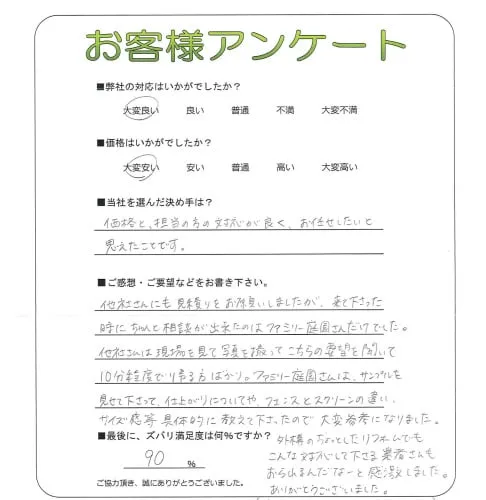 お客様アンケート
■弊社の対応はいかがでしたか?
大変良い 良い 普通 不満 大変不満
■価格はいかがでしたか?
大変安い 安い 普通 高い 大変高い
■当社を選んだ決め手は?
価格と、担当の方の対応が良く、お任せしたいと
思えたことです。
■ご感想・ご要望などをお書き下さい。
他社さんにも見積りをお願いしましたが、来て下さった
時にちゃんと相談が出来たのはファミリー庭園さんだけでした。
他社さんは現場を見て写真を撮ってこちらの要望を聞いて
10分程度で帰る方ばかり。ファミリー庭園さんは、サンプルを
見せて下さって、仕上がりについてや、フェンスとスクリーンの違い、
サイズ感等具体的に教えて下さったので大変参考になりました。
■最後に、ズバリ満足度は何%ですか?
90 %
外構のちょっとしたリフォームでも
こんな対応して下さる業者さんも
おられるんだなーと感激しました。
ありがとうございました。
ご協力頂き、誠にありがとうございました。